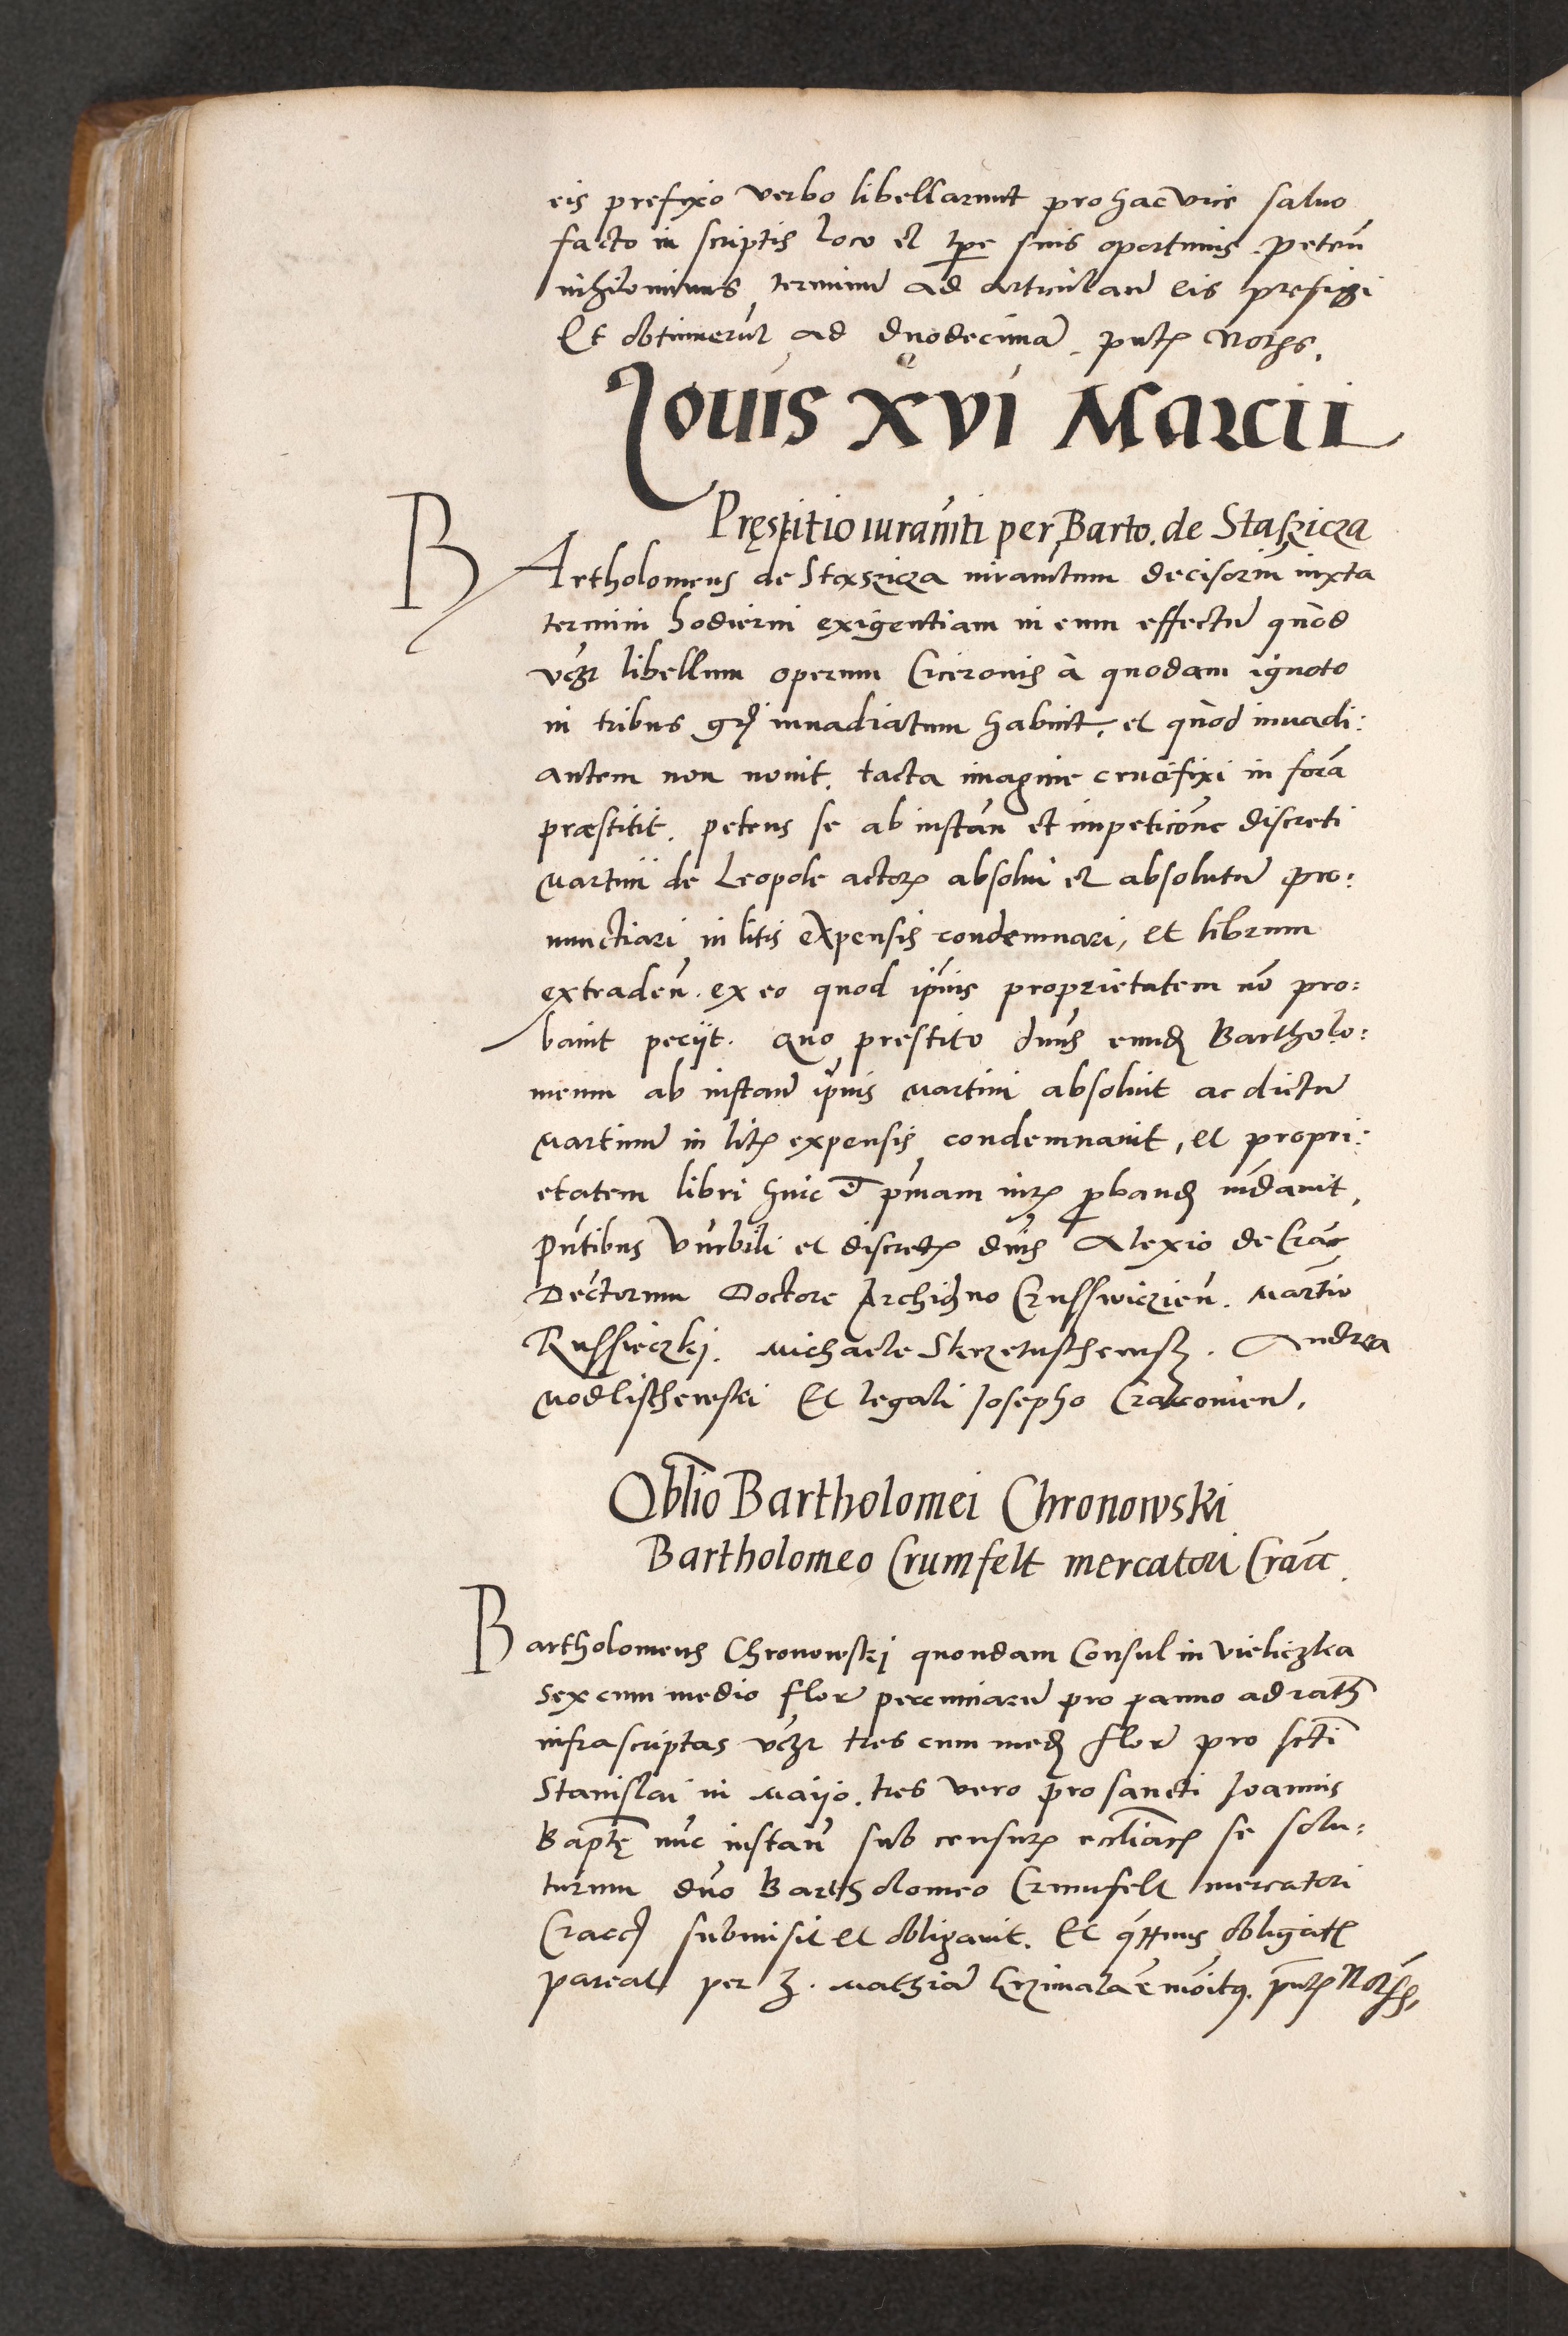 eis prefixo verbo libellarunt pro hac vice saluo
facto in scriptis loco et tp̄e suis oportunis. peteñ
nihilominus terminū ad articulanđ eis prefigi
Et obtinuerūt ad duodecimā. pn̄tꝭ Notħs.
Iouis XVI Marcii
Pręstitio iuram̄ti per Barto. de Staszicza
BArtholomeus de Staszicza iuramentum decisoriū iuxta
termini hodierni exigentiam in eum effectū quòd
vcꝫ libellum operum Ciceronis à quodam ignoto
in tribus gr̄ inuadiatum habuit, et quòd inuadi:
antem non nouit. tacta imagine crucifixi in formā
præstitit. petens se ab instan̄ et impetiōne discreti
Martini de Leopole actorꝭ absolui et absolutū pro:
nunctiari in litis expensis condemnari, et librum
extradeñ. ex eo quod ip̄ius proprietatem nō pro:
bauit peciit. Quo prestito dn̄s eund Bartholo:
meum ab instan̄ ip̄ius Martini absoluit ac dictū
Martinū in litꝭ expensis condemnauit, et propri:
etatem libri huic p̄mam iurꝭ ꝓband mādauit,
Pn̄tibus Vn̄rbili et discretꝭ dn̄is Alexio de Crac̄
Decторum Doctore Archid̄no Crusswiczieñ. Martīo
Russieczkj. Michaele Skrzetuschewsꝫ. Andrea
Modlischewski Et legali Josepho Cracouieñ.
Obl̄io Bartholomei Chronowski
Bartholomeo Crumfelt mercatori Cracc̄.
Bartholomeus Chronowskj quondam Consul in Vieliczka
Sex cum medio flor̄ peccuniarū pro panno ad rath
infrascriptas vcꝫ tres cum med flor̄ pro sctī
Stanislai in Maijo. tres vero pro sancti Joannis
Baptę nūc instañ sub censurꝭ eccl̄iacꝭ se solu:
turum dn̄o Bartholomeo Crumfelt mercatori
Cracc submisit et obligauit. Et q̄ttinus obligatꝭ
pareat per ʒ. Mathiā Crzimala ē mōitꝰ. pn̄tꝭ Notħs,